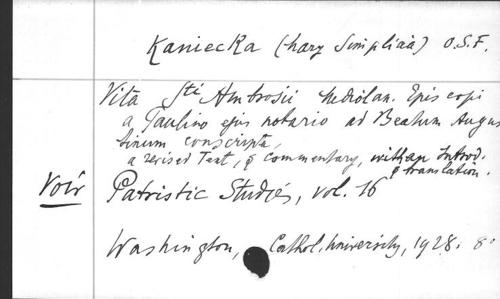 Kaniecka (Mary Simplicia) O.S.F.
Vita Sti Ambrosii Mediolan. Episcopi
a Paulino ejus notario ad Beatum Augus
tinum conscripta,
a revised Text, & Commentary, with an Introd.
& translation.
Voir Patristic Studies, vol. 16
Washington, Cathol. University, 1928. 8°